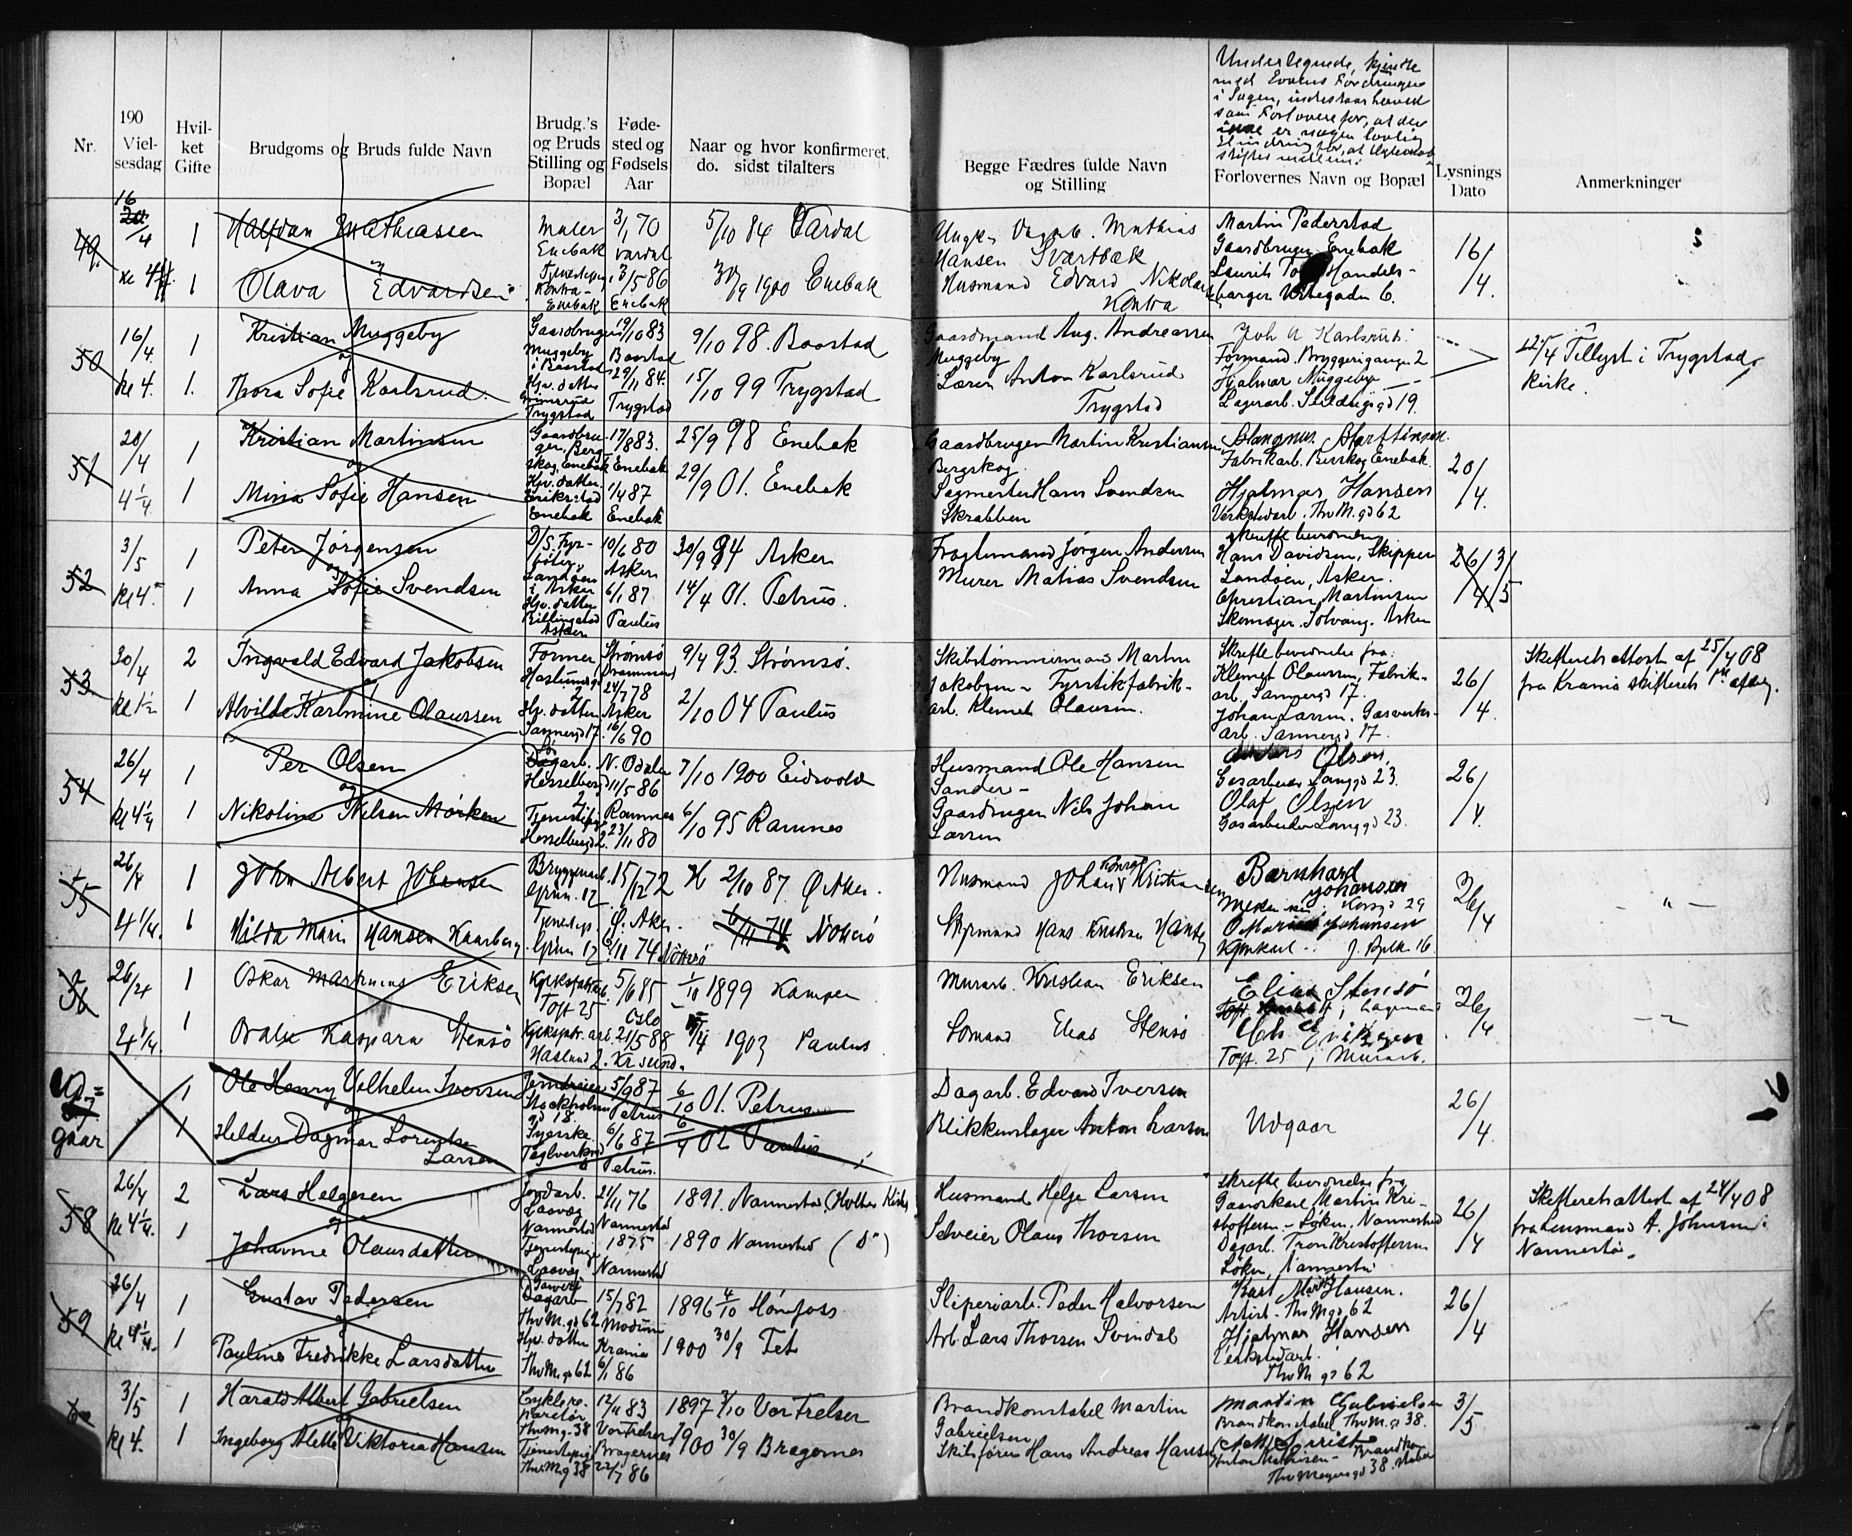 Nr.
190
Viel-
sesdag
Hvil-
ket
Gifte
Brudgoms og Bruds fulde Navn
Brudg.'s
og Bruds
Stilling og
Bopæl
Føde-
sted og
Fødsels
Aar
Naar og hvor konfirmeret,
do. sidst tilalters
Begge Fædres fulde Navn
og Stilling
Underlegnede, kjendte
med Evens Fordringer
i Sagen, indestaar herved
som Forlovere for, at der
er nogen lovlig
Hindring for, at Ægteskab
stiftes mellem:
Forlovernes Navn og Bopæl
Lysnings
Dato
Anmerkninger
49.
16
20/4
1
Halfdan Mathiassen
og
Maler
Enebak
3/1 70
Vardal
5/10 84 Vardal
Mathias
Hansen Svartbæk
Martin Pederstad
Gaardbruger Enebak
16/4.
kl 4
1
Olava Edvardsen
Enebak
3/5 86
Enebak
30/9 1900 Enebak
Husmand Edvard Nikolaisen
Kontra
Laurits
50
16/4.
1
Kristian Muggeby
og
Gaardbruger
Muggeby
i Baastad
19/10 83
Baastad
9/10 98. Baastad
Gaardmand Aug. Andreassen
Muggeby
Joh A Karlsrud
Formand. Bryggerigangen 2
22/4 Tillyst i Trygstad
Kirke.
kl 4.
1.
Thora Sofie Karlsrud.
Hjv. datter
Grimsrud
Trygstad
29/11 84.
Trygstad
15/10 99 Trygstad
Lærer Anton Karlsrud
Trygstad
Hjalmar Muggeby
Lagerarb. 19.
51
20/4
1
Kristian Martinsen
og
Gaardbru-
ger, Berg-
skog, Enebak
17/8 83.
Enebak
25/9 98 Enebak
Gaardbruger Martin Kristiansen
Bergskog.
Magnus Martinsen.
Fabrikarb. Enebak.
20/4.
4 1/4
1
Mina Sofie Hansen
Hjv. datter
Erikstad
Enebak
1/4 87
Enebak
29/9 01. Enebak
Sagmester Hans Svendsen
Skrabben
Hjalmar Hansen
Verkstedarb. Thv M. gd 62
52
3/5
1
Peter Jørgensen
og
D/S. Fyr-
bøter,
Landøen
i Asker
10/6 80
Asker
30/9 94 Asker
Fragtemand Jørgen Andersen
skriftl. bevidnelse
Hans Davidsen, Skipper
Landøen, Asker.
26/4 3/5
kl 4.
1
Anna Sofie Svendsen
Hjv. datter
Billingstad
Asker
6/1 87.
Paulus
14/4 01. Petrus.
Murer Matias Svendsen
Christian Martinsen
Skomager. Solvang. Asker
53
30/4
2
Ingvald Edvard Jakobsen
og
Former
Haslund gd
2
Strømsø
Drammen
24/7 78
9/4 93. Strømsø.
Skibstømmermand Martin
Jakobsen -
Skriftl bevidnelse fra:
Klemet Olaussen, Fabrik-
arb. Sannergd 17.
26/4.
Skifteretsattest af 25/4 08
fra Krania skifteret 1ste afdeling.
kl 1 1/2
1
Alvilde Karlmine Olaussen
Hjv. datter
Sannergd 17.
Asker
16/6 90
2/10 04 Paulus
Fyrstikfabrik-
arb. Klemet Olausen.
Johan Larsen. Gasverks-
arb. Sannergd 17.
54
26/4
1
Per Olsen
og
Dagarb.
Hesselbergd
2
N. Odalen
11/5 86
7/10 1900 Eidsvold
Husmand Ole Hansen
Sander -
Anders Olsen,
Gasarbeider Langgd 23.
26/4.
kl 4 1/4
1
Nikoline Nilsen Mørken
Tjenestepige
Hesselberggd 2.
Ramnes
23/11 80
6/10 95 Ramnes
Gaardbruger Nils Johan
Larsen
Olaf Olsen
Gasarbeider Langgd 23.
55
26/4
1
John Albert Johansen
Bryggeriarb.
Grün. 12
15/12 72
2/10 87. Ø. Aker.
Husmand Johan Kristiansen
Bernhard
Johansen
29
26/4
- " -
4 1/4.
1
Hilda Marie Hansen Kaarberg
Tjenestep.
Grün 12
Ø. Aker
6/11 74 Nøtterø
6/11 74 Nøtterø
Skipsmand Hans Kristian Hansen
Johansen
16.
56
26/4
1
Oskar Martinius Eriksen
Toft 25
5/6 85
Oslo
1/10 1899 Kampen
Murarb. Kristian Eriksen
Elias Stensø
26/4
- " -
4 1/4.
1
Kaspara Stensø
Haslund 2.
21/5 88
Kr.sund.
5/4 1903 Paulus
Sømand Elias Stensø
Chr. Eriksen
Toft. 25, Murarb.
Ud=
57
gaar
1
Ole Henry Vilhelm Iversen
og
Jerndreier
Stockholms
gd 18.
5/9 87
Petrus
6/10 01. Petrus.
Dagarb. Edvard Iversen
Udgaar
26/4.
1
Heldur Dagmar Lorentse
Larsen
Syerske.
Teglverksgd
6/6 87
Petrus.
6/4 02 Paulus
Blikkenslager Anton Larsen
58
26/4
2
Lars Helgesen
og
Jordarb.
Laavæg
Nannestad
21/1 76
Nannestad
1891. Nannestad (Holter Kirke)
Husmand Helge Larsen
Skriftl. bevidnelse fra
Gaardkarl Martin Kri-
stoffersen - Løken, Nannestad
26/4
Skifteretsattest af 24/4 08
fra Lensmand A. Johnsen
Nannestad.
kl 4 1/4.
1
Johanne Olausdatter
Tjenestepige
Laavæg
1875
Nannestad
1890 Nannestad (Do)
Selveier Olaus Thorsen
Dagarb. Tron Kristoffersen
Løken, Nannestad
59
26/4
1
Gustav Pedersen
og
Garveri
Dagarb
Thv M. gd 62
15/7 82
Modum
1896 4/10 Hønefoss
Sliperiarb. Peder Halvorsen
Karl Hansen.
Thv M gd 62
26/4
kl 4 1/4.
1
Pauline Fredrikke Larsdatter
Hjv. datter
Thv M. gd 62
Krania
6/1 86
1900 30/9 Fet
Arb Lars Thorsen Svindal
Hjalmar Hansen
Verkstedarb.
Thv M gd 62
60
3/5
1
Harald Albert Gabrielsen
og
Cyklere-
paratør
Thv M g. 38
12/11 83
Vor Frelser
1897 3/10 Vor Frelser
Brandkonstabel Martin
Gabrielsen
Martin Gabrielsen
Brandkonstabel Thv M. g 38.
3/5
kl 4.
1
Ingeborg Alette Viktoria Hansen
Tjenestepige
Thv M g 38
Bragernes
22/7 86
1900 30/9 Bragernes
Skibsfører Hans Andreas Hansen
Anton Mathisen - Brandkon-
stabel
Thv Meyersgd 38.